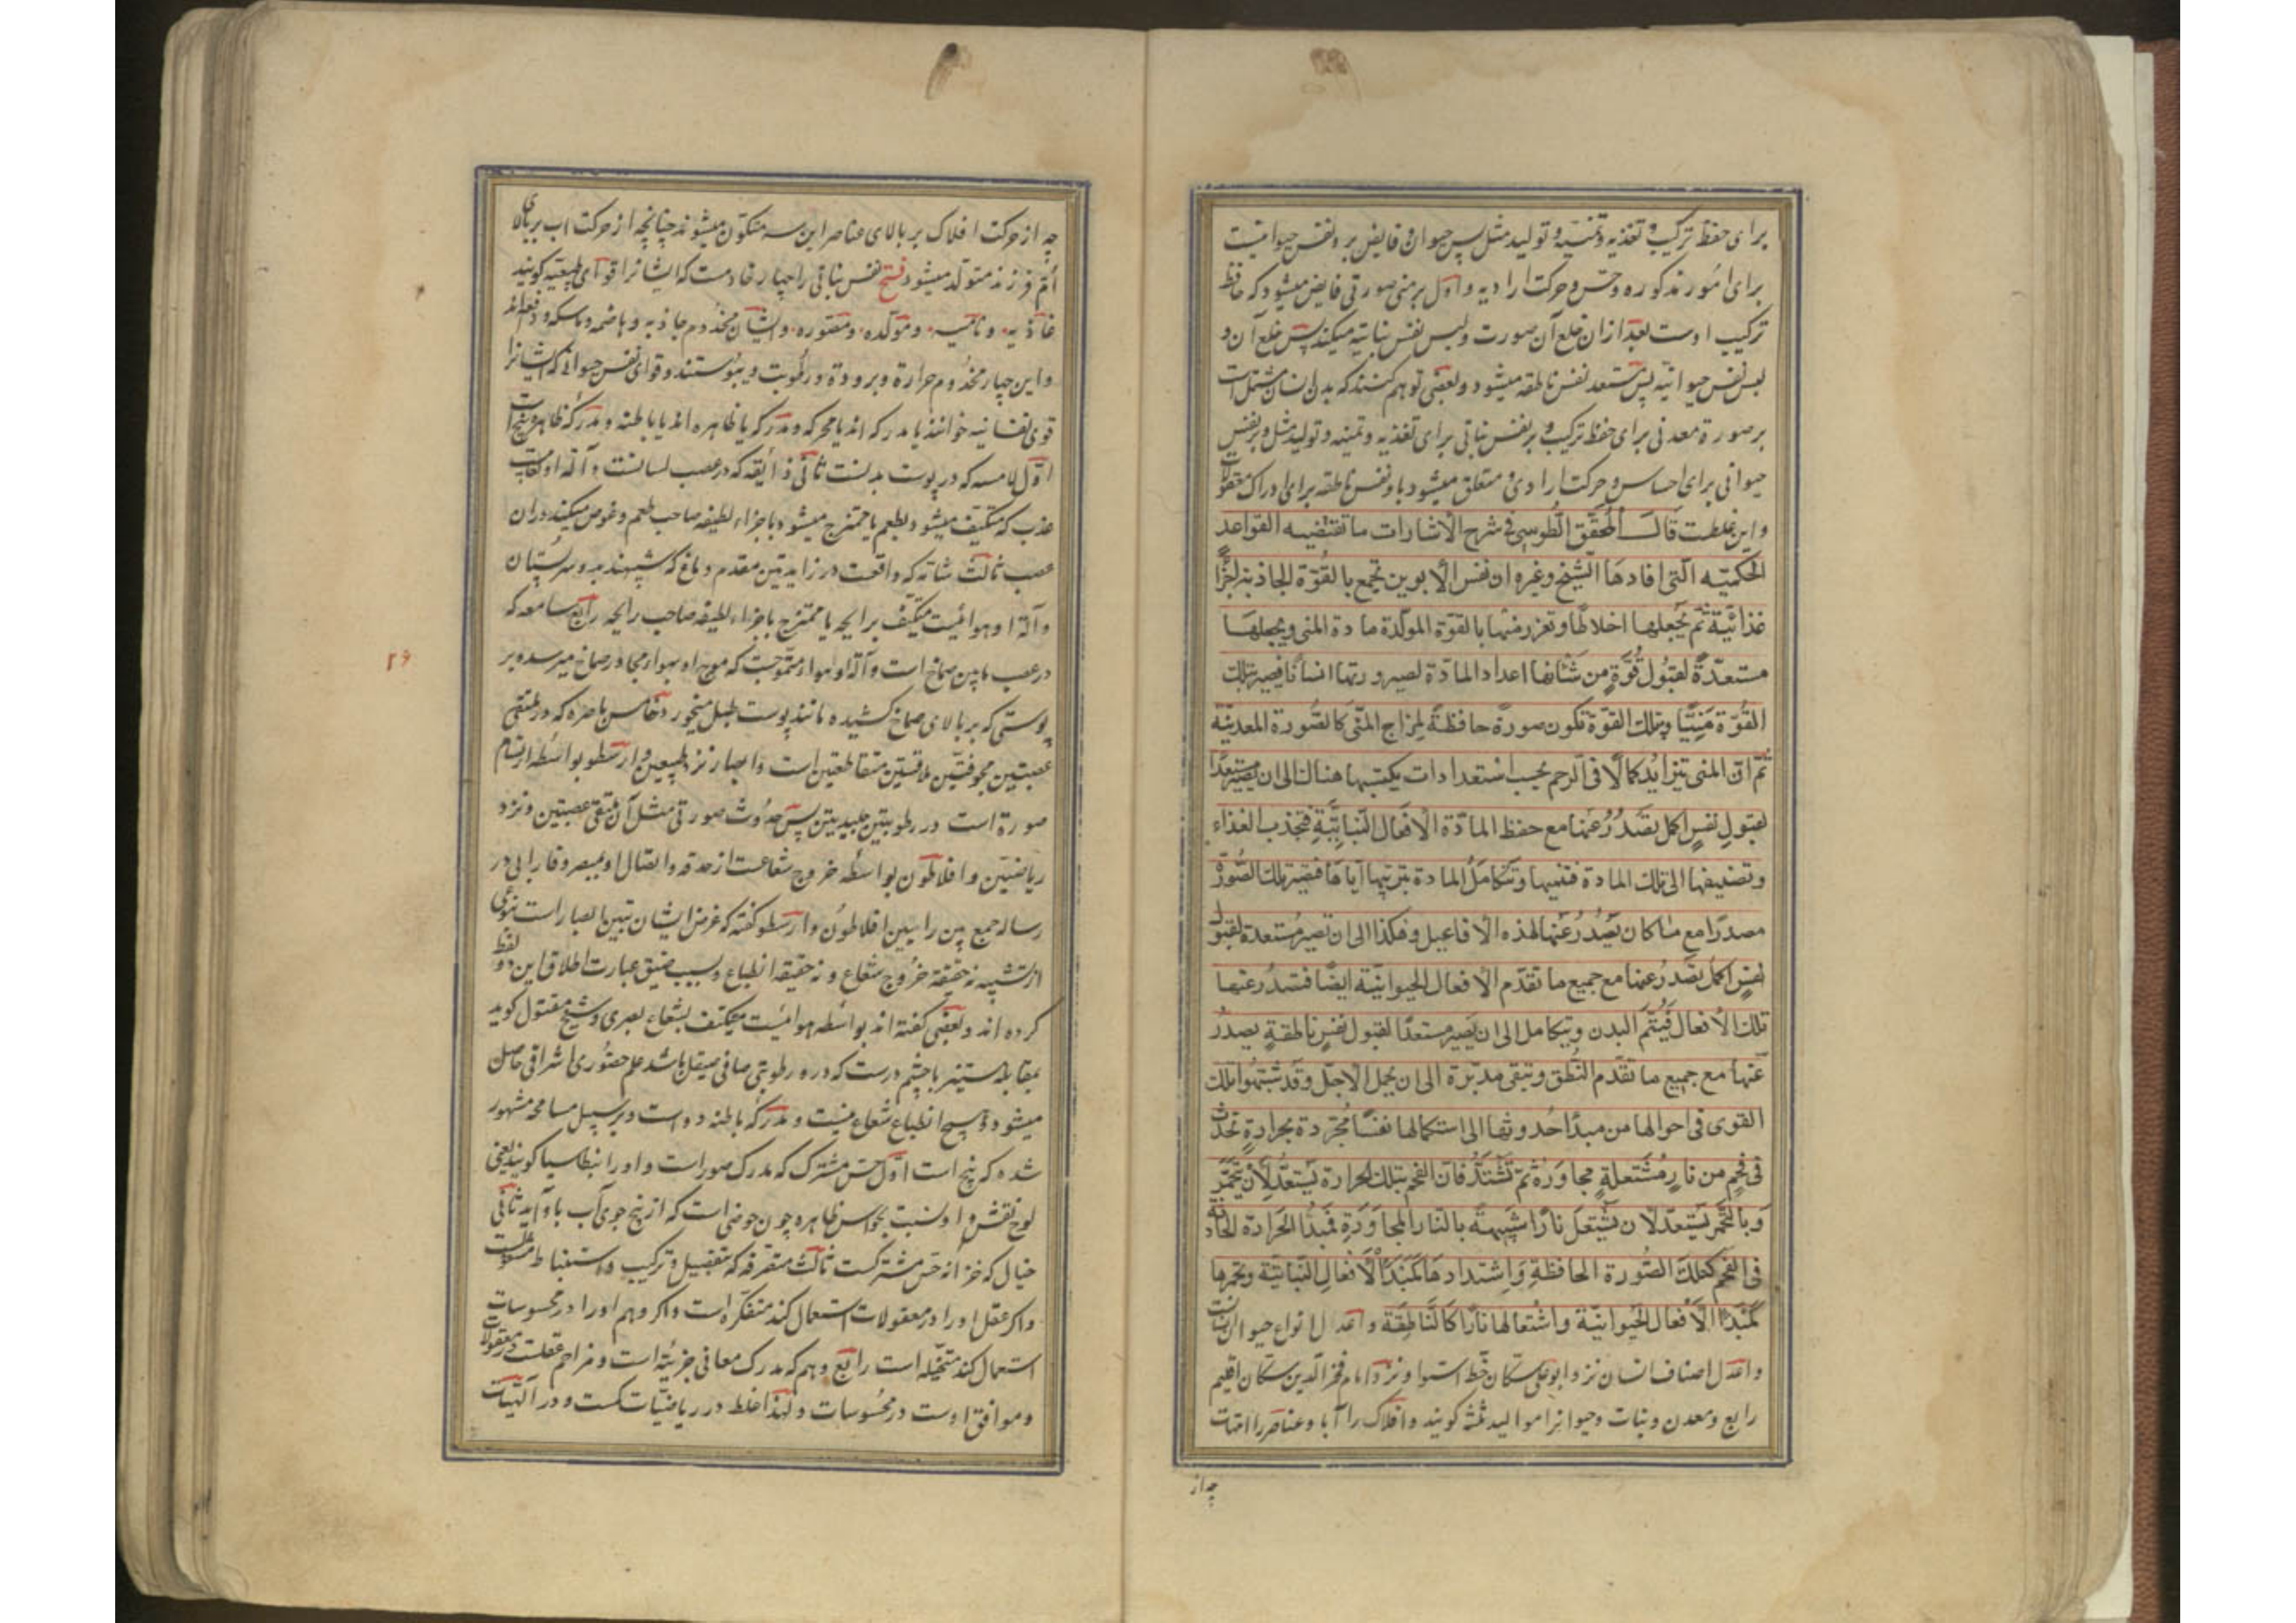 برای حفظ ترکیب و تغذیه و تنمیه و تولید مثل پس حیوان و فایض بر و نفس حیوانیت
برای امور مذکوره و حس و حرکت ارادیه و اول بر منی صورتی فایض میشود که حافظ
ترکیب اوست بعد ازان خلع آن صورت و لبس نفس نباتیه میکند پس خلع آن و
لبس نفس حیوانیه پس مستعد نفس ناطقه میشود و بعضی توهم کنند که بدن انسان مشتمل است
بر صورة معدنی برای حفظ ترکیب و بر نفس نباتی برای تغذیه و تنمیه و تولید مثل و بر نفس
حیوانی برای احساس و حرکت ارادی و متعلق میشود باو نفس ناطقه برای ادراک معقولات
و این غلطت قال المحقق الطوسی فی شرح الاشارات ما تقتضیه القواعد
الحکمیّه الّتی افادها الشیخ و غیره ان نفس الابوین تجمع بالقوّة الجاذبه اجزاءً
غذائیّة ثم یجعلها اخلاطا و تفرز منها بالقوّة المولّدة مادة المنی و یجعلها
مستعدّةً لقبول قُوّةٍ من شانها اعداد المادّة لصیرورتها انسانًا فیصیر بتلک
القُوّة مَنِیًّا و تلک القوّة تکون صورة حافظةً لمزاج المنّی کالصّورة المعدنیّة
ثم انّ المنی تیزایدُ کمالًا فی الرحم بحسب استعدادات یکتسبها هنالک الی ان یصیر مستعدًّا
لقبول نفسٍ اکمل یصدُرُ عنها مع حفظ المادّة الافعال النباتیّة فتجذب الغذاء
و تضیفها الی تلک المادة فتنمیها و تتکامل المادة بتربیتها ایاها فتصیر تلک الصّورة
مصدرًا مع ما کان یصدُرُ عنها لهذه الافاعیل و هکذا الی ان تصیر مُستعدة لقبول
نفسٍ اکمل یصدُرُ عنها مع جمیع ما تقدّم الافعال الحیوانیّة ایضًا فتصدُر عنها
تلک الافعال فیُتّم البدن و یتکامل الی ان یصیر مستعدًّا لقبول نفسٍ ناطقةٍ یصدُرُ
عنها مع جمیع ما تقدّم النُّطق و تبقی مدبّرة الی ان یحلّ الاجل و قد شبّهوا تلک
القوی فی احوالها من مبدأ حُدوثها الی استکمالها نفسًا مُجرّدة بحرارةٍ تحدُثُ
فی فحمٍ من نارٍ مُشتعلةٍ مجاورةٍ ثمّ تشتدّ فانّ الفحم بتلک الحرارة یستعدّ لان یتجمّر
و بالتّجمّر یستعدّ لان یشتعل نارًا شبیهةً بالنّار المجاورة فمبدأ الحرارة الحادثة
فی الفحم کتلک الصّورة الحافظةِ و اشتدادها کمبدأ الافعال النّباتیّة و تجمّرها
کمبدأ الافعال الحیوانیّة و اشتعالها نارًا کالنّاطقة و اعدل انواع حیوان انسانست
و اعدل اصناف انسان نزد ابو علی سکّان خط استوا و نزد امام فخر الدین سکّان اقلیم
رابع و معدن و نبات و حیوانرا موالید ثلثه کویند و افلاک را آبا و عناصر را امّهات
چه از
چه از حرکت افلاک بر بالای عناصر این سه متکوّن میشوند چنانچه از حرکت اب بر بالای
اُمّ فرزند متولّد میشود فتح نفس نباتی را چهار خادمست که ایشانرا قوای طبیعیّه کویند
غاذیه و نامیه و مولّده و مصوّره و ایشان مخدُوم جاذبه و هاضمه و ماسکه و دافعه‌اند
و این چهار مخدُوم حرارة و برودة و رطوبت و یبُوستند و قوای نفس حیوانی که ایشانرا
قوی نفسانیه خوانند یا مدرکه اند یا محرکه و مدرکه یا ظاهره اند یا باطنه و مدرکه ظاهره پنج است
اوّل لامسه که در پوست بدنست ثانی ذائقه که در عصب لسانست و آلة او لعاب
عذب که متکیّف میشود بطعم یا ممتزج میشود باجزاء لطیفه صاحب طعم و غوص میکند دران
عصب ثالث شامّه که واقعت در زایدتین مقدم دماغ که شبیهند بدو سر پستان
و آلة او هوائیست متکیّف برایحه یا ممتزج باجزاء لطیفه صاحب رایحه رابع سامعه که
در عصب ما بین صماخ است و آلة او هواء متموّجست که موج او بهواء مجاور صماخ میرسد و بر
پوستی که بر بالای صماخ کشیده مانند پوست طبل میخورد خامس باصره که در ملتقی
عصبتین مجوفتین ملاقیتین متقاطعتین است و ابصار نزد طبیعین و ارسطو بواسطه ارتسام
صورة است در رطوبتین جلیدیتین پس حدُوث صورتی مثل آن در ملتقی عصبتین و نزد
ریاضیّین و افلاطون بواسطه خروج شعاعست از حدقه و اتصال او بمبصر و فارابی در
رساله جمع بین رایین افلاطون و ارسطو کفته که غرض ایشان تبیین ابصار است بنوعی
از تشبیه نه حقیقة خرُوج شعاع و نه حقیقة انطباع و بسبب ضیق عبارت اطلاق این دو لفظ
کرده اند و بعضی کفته اند بواسطه هوائیست متکیّف بشعاع بصری و شیخ مقتول کوید
بمقابله مستنیر با چشم درست که درو رطوبتی صافی صیقل باشد علم حضوری اشراقی حاصل
میشود و هیچ انطباع و شعاع نیست و مدرکه باطنه دو است و بر سبیل مسامحه مشهور
شده که پنج است اوّل حسّ مشترک که مدرک صور است و او را بنطاسیا کویند یعنی
لوح نقش و او نسبت بحواس ظاهره چون حوضی است که از پنج جوی آب باو آید ثانی
خیال که خزانه حسّ مشترکست ثالث متصرّفه که بتفصیل و ترکیب و استنباط مشغولست
و اکر عقل او را در معقولات استعمال کند متفکّره است و اکر وهم او را در محسوسات
استعمال کند متخیّله است رابع وهم که مدرک معانی جزئیّه است و مزاحم عقلست در معقولات
و موافق اوست در محسُوسات و لهذا غلط در ریاضیّات کمست و در آلهیّات
۲۶